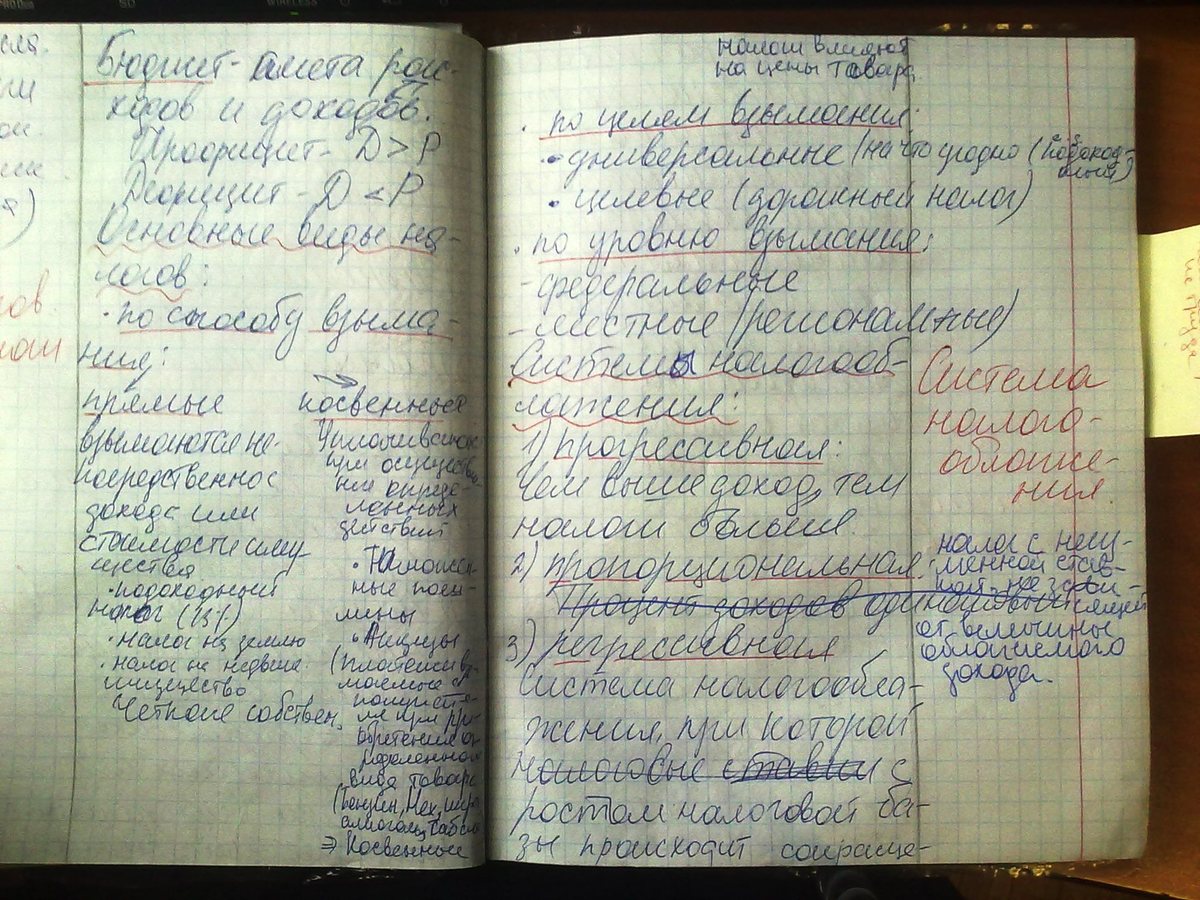 Бюджет - смета рас-
ходов и доходов.
Профицит - D > P
Дефицит - D < P
Основные виды на-
логов:
· по способу взыма-
ния:
прямые
взымаются не-
посредственно с
дохода или
стоимости иму-
щества
· подоходный
налог (13%)
· налог на землю
· налог на недвиж.
имущество
Четкие собствен.
косвенные
Уплачиваются
при осуществле-
нии опреде-
ленных
действий
· Таможен-
ные пош-
лины
· Акцизы
(платежи вз-
маемые с
покупате-
ля при при-
обретении оп-
ределенного
вида товара
(Бензин, Мех, икра
алкоголь, табак)
⇒ Косвенные
налоги влияют
на цены товара
· по целям взымания:
· универсальные (на что угодно (подоход-
ный)
· целевые (дорожный налог)
· по уровню взымания:
- федеральные
- местные (региональные)
Системы налогооб-
ложения:
1) прогрессивная:
Чем выше доход, тем
налоги больше.
2) пропорциональная:
Процент доходов одинаковый
3) регрессивная
Система налогообла-
жения, при которой
налоговые ставки с
ростом налоговой ба-
зы происходит сокраще-
Система
налого-
обложе-
ния.
налог с неиз-
менной став-
кой, не зави-
сящей
от величины
облагаемого
дохода.